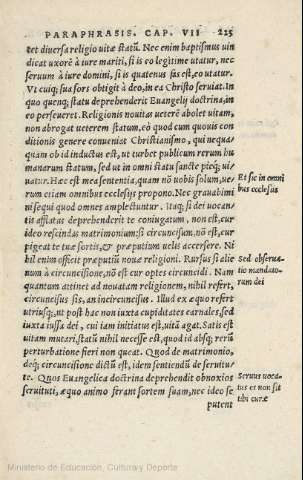 PARAPHRASIS. CAP. VII 225
tet diversa religio uitæ statũ. Nec enim baptismus uin
dicat uxorẽ à iure mariti, si is eo legitime utatur, nec
seruum à iure domini, si is quatenus ius est, eo utatur.
Vt cuiq; sua sors obtigit à deo, in ea Christo seruiat. In
quo quenq; statu deprehenderit Euangelij doctrina, in
eo perseueret. Religionis nouitas ueterẽ abolet uitam,
non abrogat ueterem statum, eò quod cum quouis con
ditionis genere conueniat Christianismo, qui nequa=
quam ob id inductus est, ut turbet publicum rerum hu
manarum statum, sed ut in omni statu sancte pieq; ui=
uatur. Hæc est mea sententia, quam nõ uobis solum, ue=
rum etiam omnibus ecclesijs propono. Nec grauabimi
ni sequi quod omnes amplectuntur. Itaq; si dei uocan=
tis afflatus deprehenderit te coniugatum, non est, cur
ideo rescindas matrimonium: si circuncisum, nõ est, cur
pigeat te tuæ sortis, & præputium uelis accersere. Ni
hil enim officit præputiũ nouæ religioni. Rursus si alie
num à circuncisione, nõ est cur optes circuncidi. Nam
quantum attinet ad nouatam religionem, nihil refert,
circuncisus sis, an incircuncisus. Illud ex æquo refert
utriusq; ut post hac non iuxta cupiditates carnales, sed
iuxta iussa dei, cui iam initiatus est, uitã agat. Satis est
uitam mutari, statũ nihil necesse est, quod id absq; rerũ
perturbatione fieri non queat. Quod de matrimonio,
deq; circuncisione dictũ est, idem sentiendũ de seruitu=
te. Quos Euangelica doctrina deprehendit obnoxios
seruituti, æquo animo ferant sortem suam, nec ideo se
putent
Et sic in omni
bus ecclesijs
Sed obserua=
tio mandato=
rum dei
Seruus uoca=
tus es non sit
tibi curæ
Ministerio de Educación, Cultura y Deporte